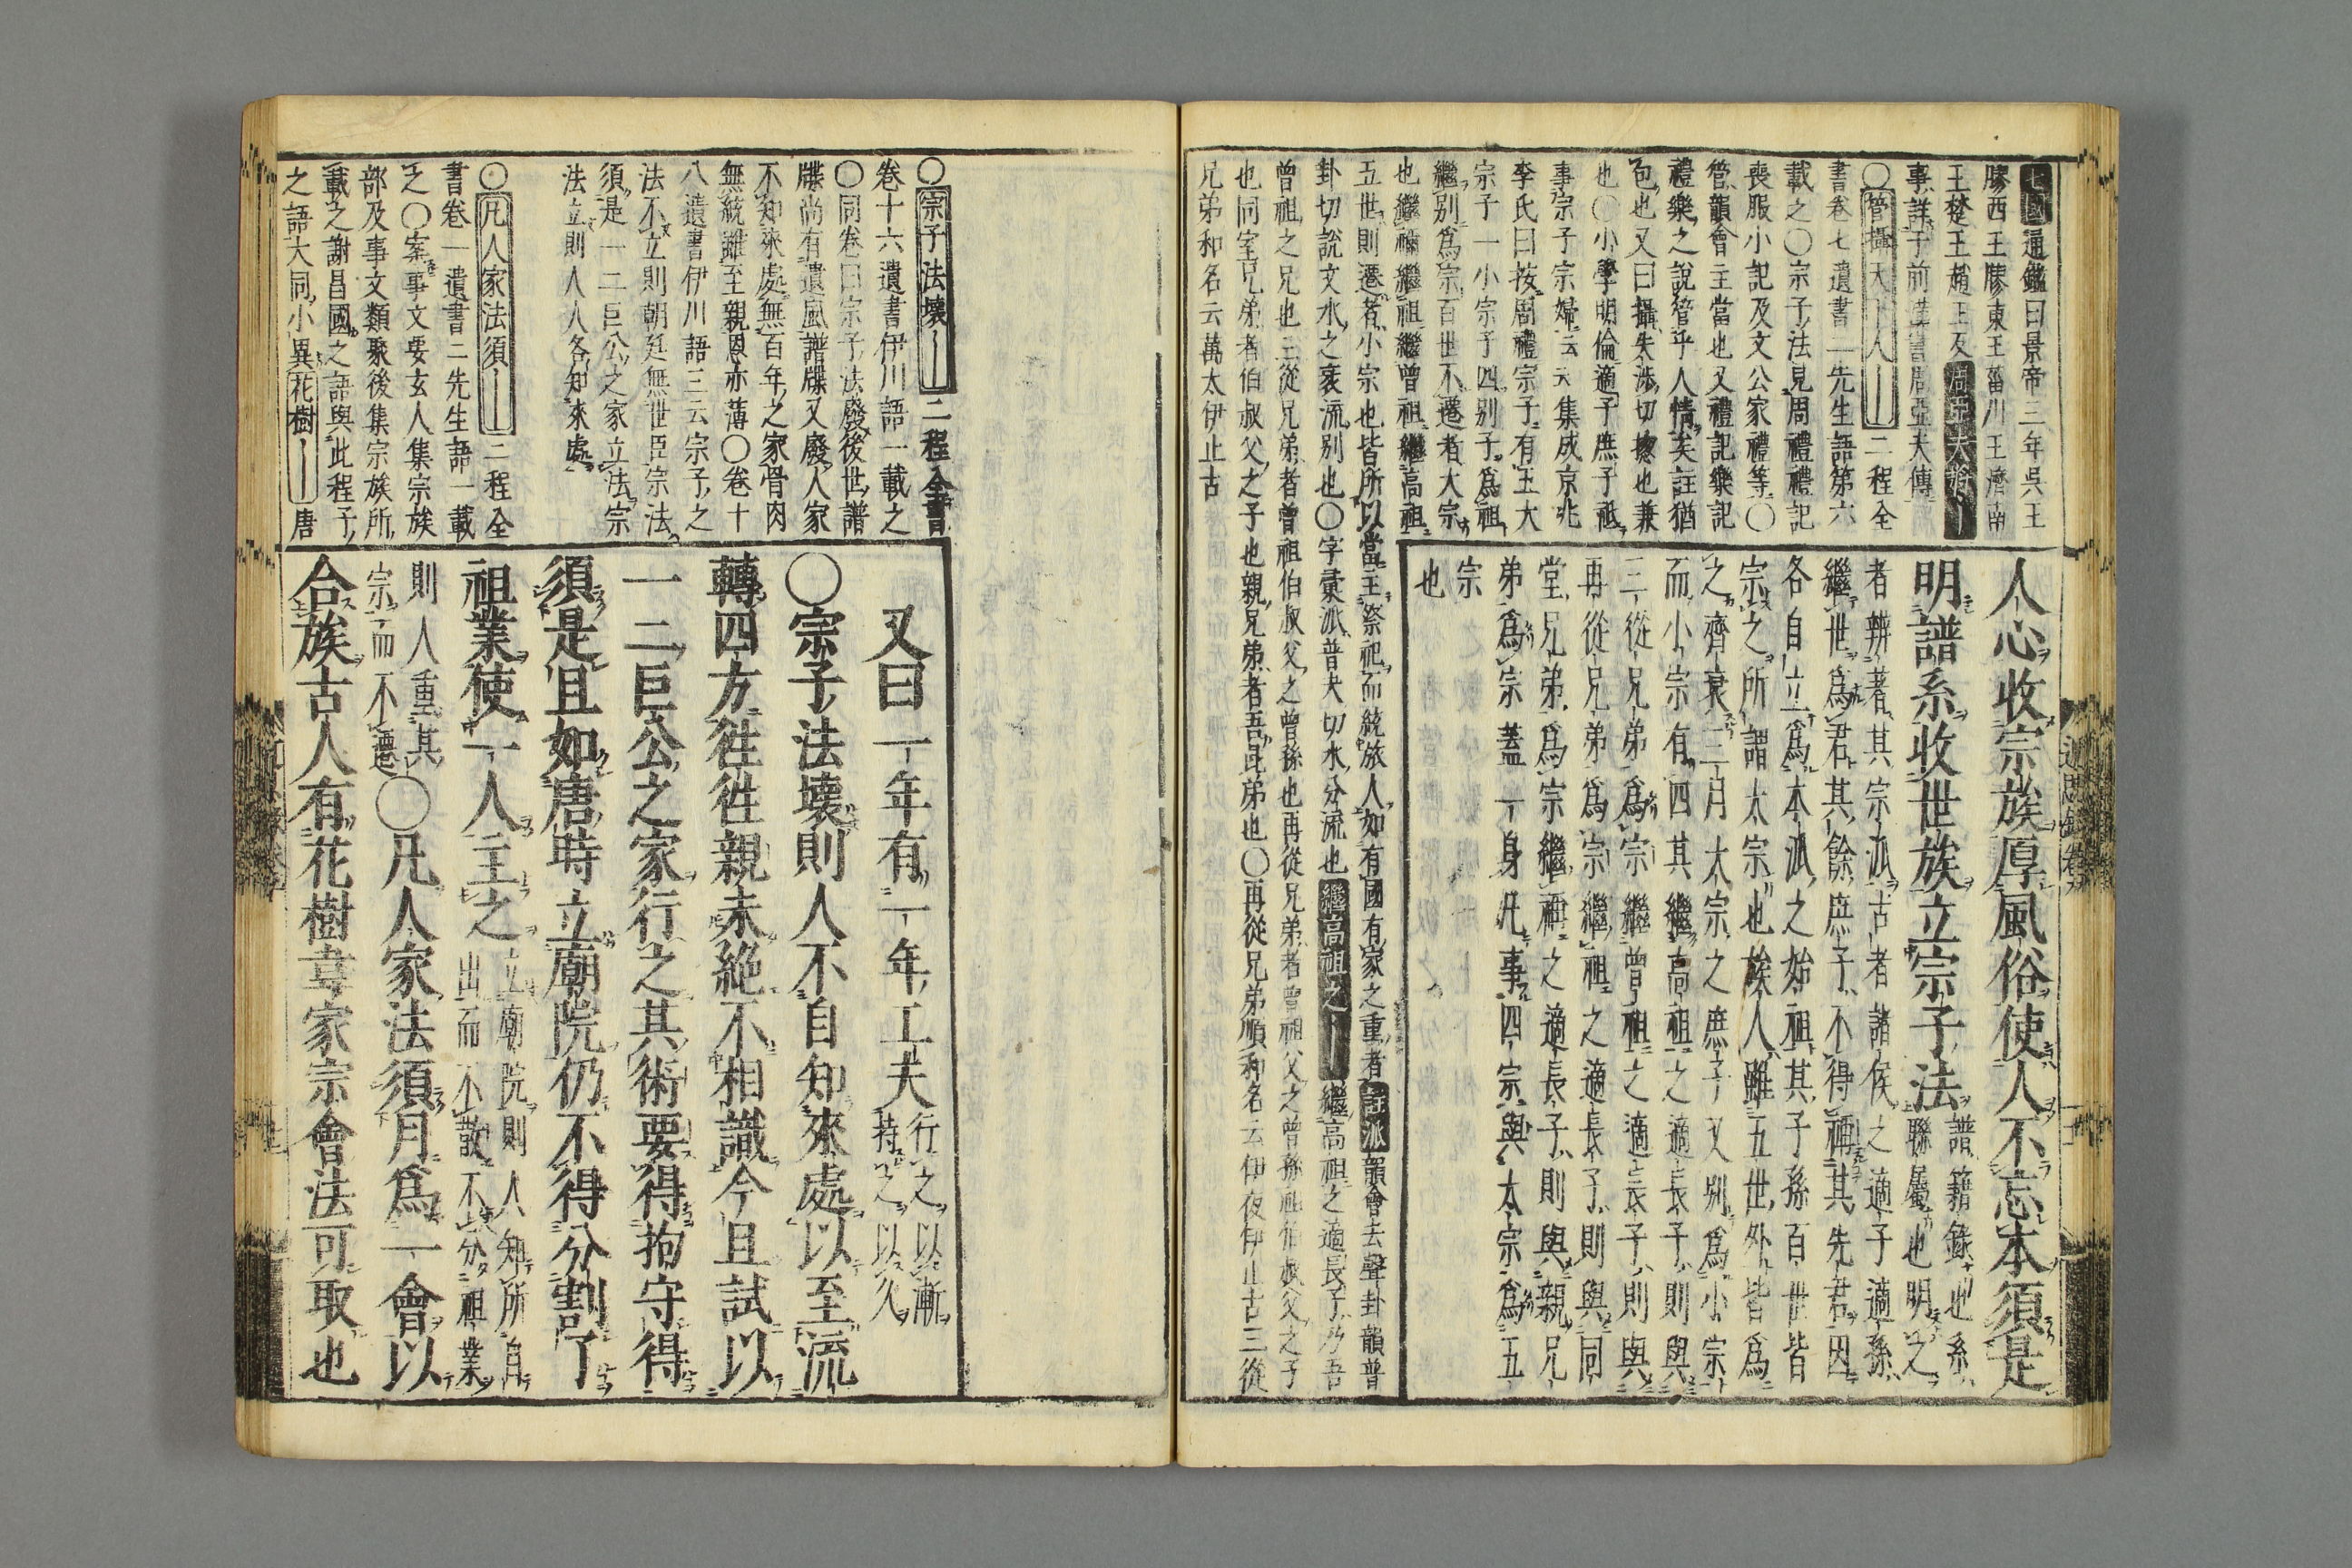 七國通鑑曰景帝三年吳王
膠西王膠東王菑川王濟南
王楚王趙王反周亞夫將
事詳于前漢書周亞夫傳
〇管攝天下人二程全
書卷七遺書二先生語第六
載之〇宗子法見周禮禮記
喪服小記及文公家禮等〇
管韻會主當也又禮記樂記
禮樂之說管乎人情矣註猶
包也又曰攝失涉切捴也兼
也〇小學明倫適子庶子祗
事宗子宗婦云云集成京兆
李氏曰按周禮宗子有五大
宗子一小宗子四別子爲祖
繼別爲宗百世不遷者大宗
也繼禰繼祖繼曾祖繼高祖
五世則遷者小宗也皆所以當主祭祀而統族人如有國有家之重者註派韻會去聲卦韻普
卦切說文水之衺流別也〇字彙派普夬切水分流也繼高祖之繼高祖之適長子乃吾
曾祖之兄也三從兄弟者曾祖伯叔父之曾孫也再從兄弟者曾祖父之曾孫祖伯叔父之子
也同室兄弟者伯叔父之子也親兄弟者吾昆弟也〇再從兄弟順和名云伊夜伊止古三從
兄弟和名云萬太伊止古
人心收宗族厚風俗使人不忘本須是
明譜系收世族立宗子法譜籍錄也系
聯屬也明之
者辨著其宗派古者諸侯之適子適孫
繼世爲君其餘庶子不得禰其先君因
各自立爲本派之始祖其子孫百世皆
宗之所謂大宗也族人雖五世外皆爲
之齊衰三月大宗之庶子又別爲小宗
而小宗有四其繼高祖之適長子則與
三從兄弟爲宗繼曾祖之適長子則與
再從兄弟爲宗繼祖之適長子則與同
堂兄弟爲宗繼禰之適長子則與親兄
弟爲宗蓋一身凡事四宗與大宗爲五
宗
也
〇宗子法壞二程全書
卷十六遺書伊川語一載之
〇同卷曰宗子法廢後世譜
牒尚有遺風譜牒又廢人家
不知來處無百年之家骨肉
無統雖至親恩亦薄〇卷十
八遺書伊川語三云宗子之
法不立則朝廷無世臣宗法
須是一二巨公之家立法宗
法立則人人各知來處
〇凡人家法須二程全
書卷一遺書二先生語一載
之〇案事文要玄人集宗族
部及事文類聚後集宗族所
載之謝昌國之語與此程子
之語大同小異花樹唐
又曰一年有一年工夫行之以漸
持之以久
〇宗子法壞則人不自知來處以至流
轉四方徃徃親未絶不相識今且試以
一二巨公之家行之其術要得拘守得
須是且如唐時立廟院仍不得分割了
祖業使一人主之立廟院則人知所自
出而不散不分祖業
則人重其
宗而不遷〇凡人家法須月爲一會以
合族古人有花樹韋家宗會法可取也